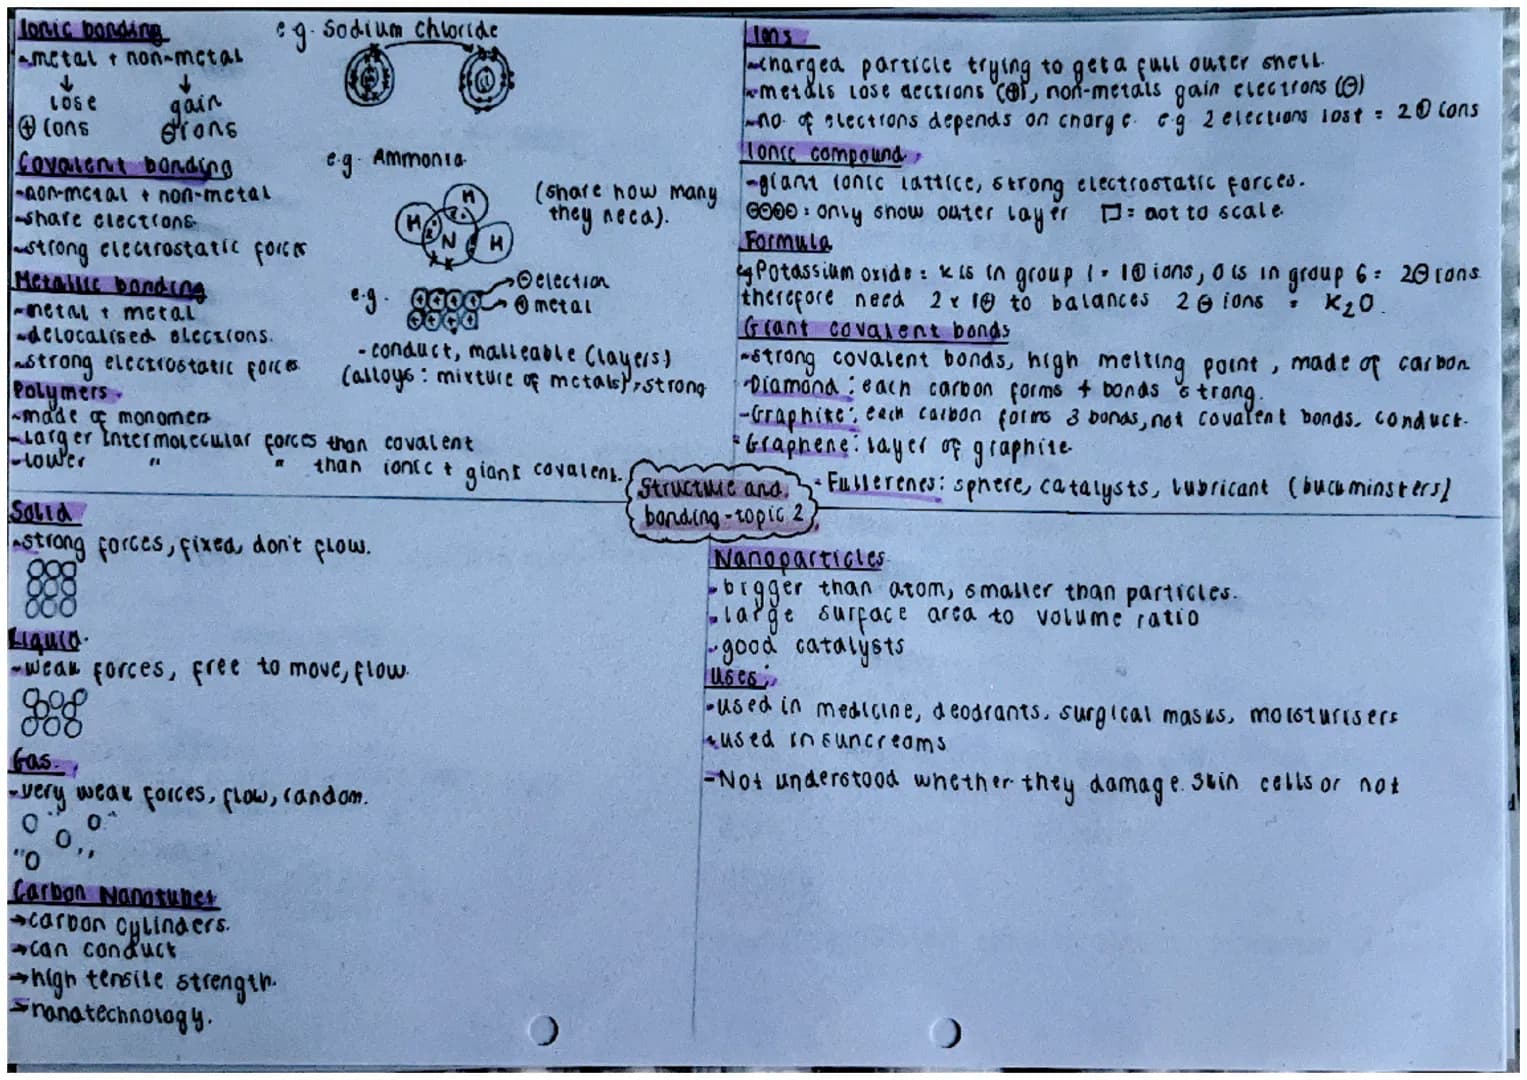 Ionic bonding
-metal + non-metal
↓ ↓
lose gain
⊕ ions ⊖ ions
e.g. Sodium Chloride
Covalent bonding
-non-metal + non-metal
-share electrons
-strong electrostatic forces
e.g. Ammonia
H
H N H
(share how many
they need).
Metallic bonding
-metal + metal
-delocalised electrons.
-strong electrostatic forces
e.g.
→⊖ electron
→⊕ metal
-conduct, malleable (layers)
(alloys: mixture of metals), strong
Polymers
-made of monomers
-larger intermolecular forces than covalent
-lower " " than ionic + giant covalent.
Ions
-charged particle trying to get a full outer shell.
-metals lose electrons (⊕), non-metals gain electrons (⊖)
-no. of electrons depends on charge e.g 2 electrons lost = 2⊕ ions
Ionic compound
-giant ionic lattice, strong electrostatic forces.
: only show outer layer : not to scale
Formula
eg Potassium oxide: K is in group 1 = 1⊕ ions, O is in group 6 = 2⊖ ions
therefore need 2 x 1⊕ to balances 2⊖ ions = K₂O.
Giant covalent bonds
-strong covalent bonds, high melting point, made of carbon
-Diamond: each carbon forms 4 bonds strong.
-Graphite: each carbon forms 3 bonds, not covalent bonds, conduct.
-Graphene: layer of graphite.
-Fullerenes: sphere, catalysts, lubricant (bucuminsters)
Structure and
bonding-topic 2
Solid
-strong forces, fixed, don't flow.
Liquid.
-weak forces, free to move, flow.
Gas.
-very weak forces, flow, random.
Carbon Nanotubes
→carbon cylinders.
→can conduct
→high tensile strength.
→nanotechnology.
Nanoparticles
-bigger than atom, smaller than particles.
-large surface area to volume ratio
-good catalysts
Uses
-used in medicine, deodrants, surgical masks, moisturisers
-used in suncreams
-Not understood whether they damage skin cells or not